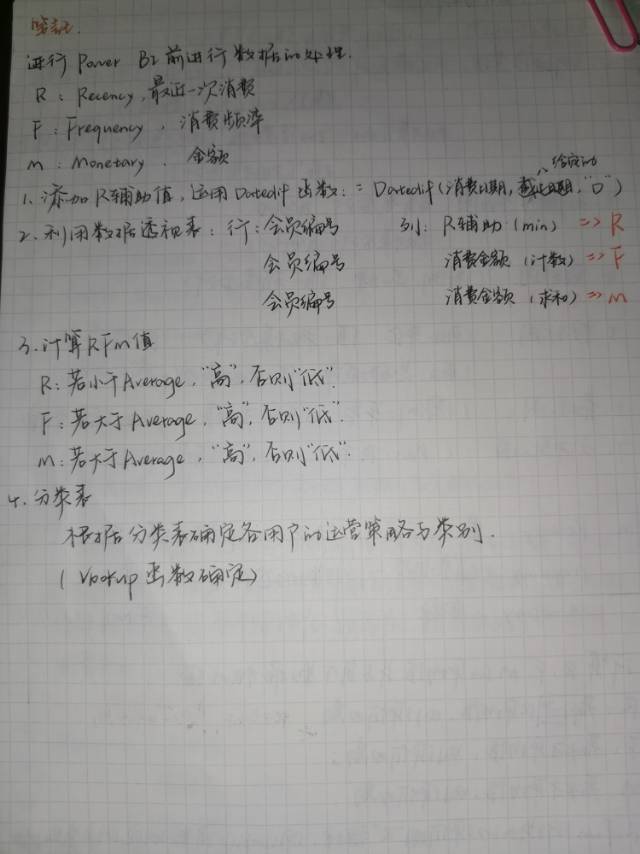 进行 Power BI 前进行数据的处理.
R : Recency, 最近一次消费
F : Frequency , 消费频率
M : Monetary . 金额
给定的
1. 添加R辅助值, 运用 Datedif 函数: = Datedif (消费日期, 截止日期, "D")
2. 利用数据透视表: 行: 会员编号 列: R辅助 (min) => R
会员编号 消费金额 (计数) => F
会员编号 消费金额 (求和) => M
3. 计算RFM值
R: 若小于Average, "高", 否则"低".
F: 若大于Average, "高", 否则"低".
M: 若大于Average, "高", 否则"低".
4. 分类表
根据分类表确定各用户的运营策略与类别.
( Vlookup 函数确定)